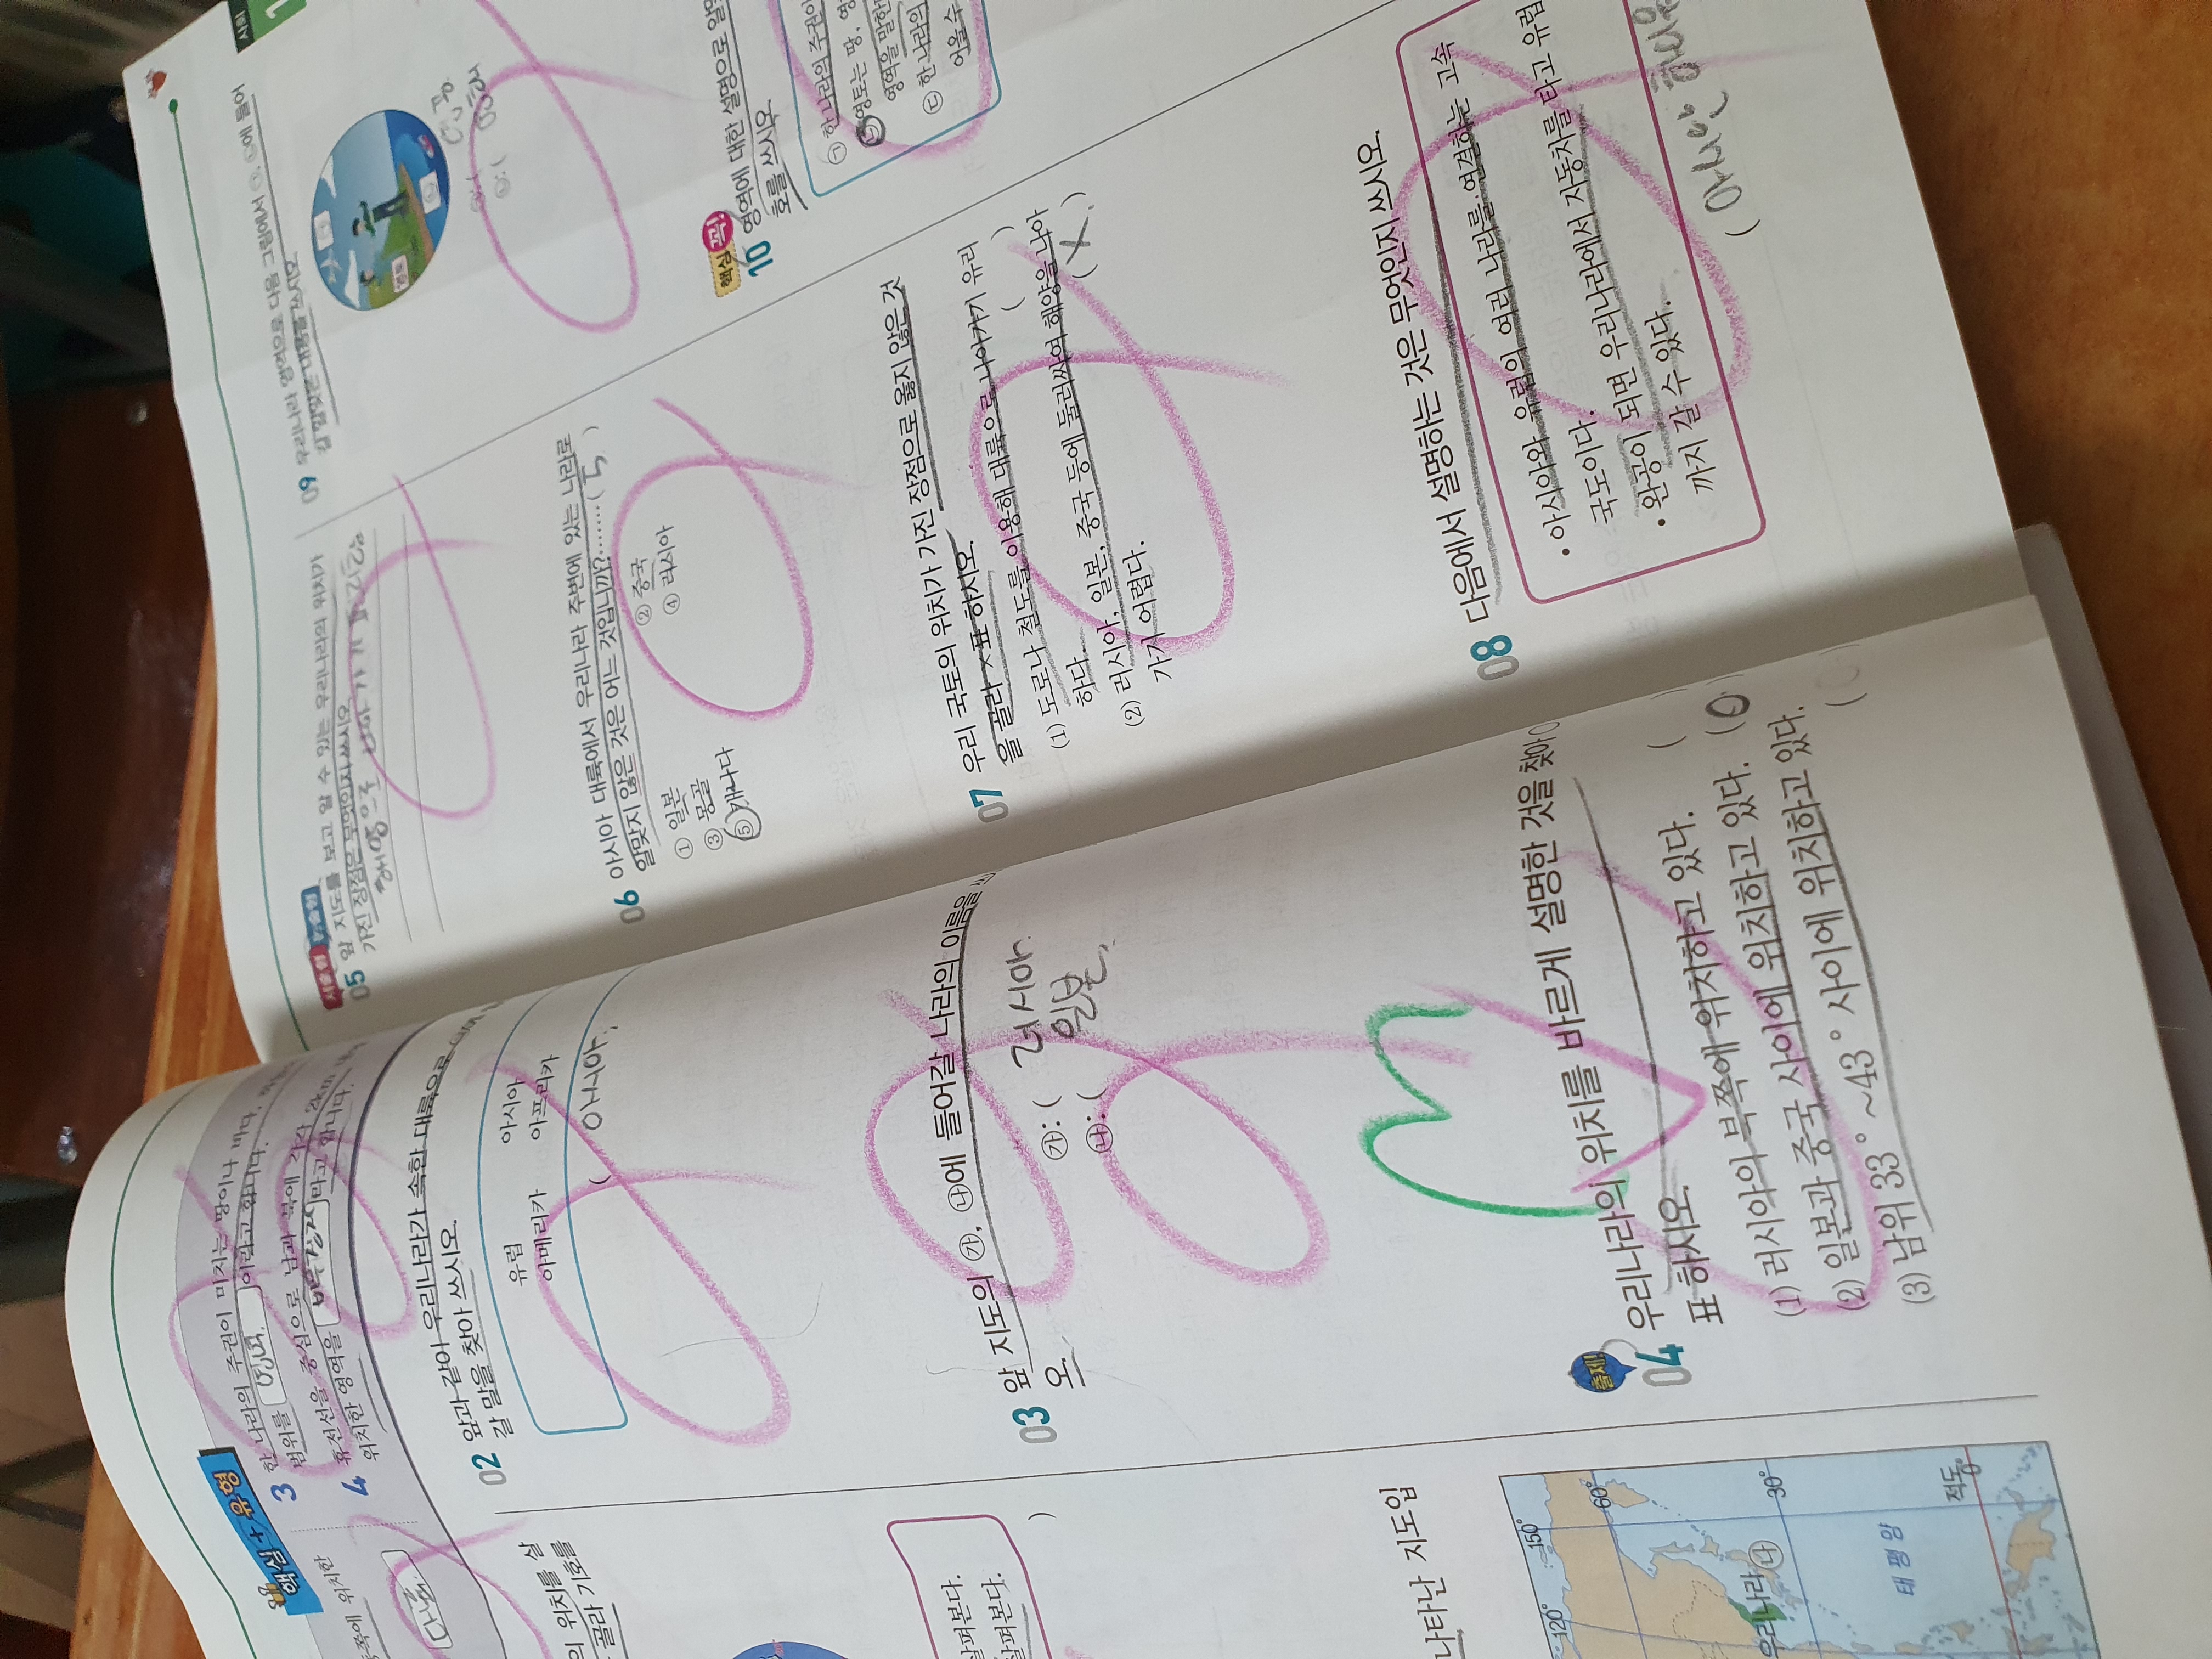 핵심 + 유형
3 한 나라의 주권이 미치는 땅이나 바다,
범위를 영역 이라고 합니다.
4 휴전선을 중심으로 남과 북에 각각 2km
위치한 영역을 비무장지대 라고 합니다.
쪽에 위치한
의 위치를 살
골라 기호를
살펴본다.
살펴본다.
)
나타난 지도입
120°
150°
60°
30°
우리나라
㉯
태평양
적도
02 앞과 같이 우리나라가 속한 대륙으로
갈 말을 찾아 쓰시오.
유럽 아시아
아메리카 아프리카
( 아시아,
03 앞 지도의 ㉮, ㉯에 들어갈 나라의 이름을
오.
㉮: ( 러시아.
㉯: ( 일본,
출제!
04 우리나라의 위치를 바르게 설명한 것을 찾아
표 하시오.
(1) 러시아의 북쪽에 위치하고 있다. ( )
(2) 일본과 중국 사이에 위치하고 있다. (O)
(3) 남위 33°~43° 사이에 위치하고 있다. (
서술형
05 앞 지도를 보고 알 수 있는 우리나라의 위치가
가진 장점은 무엇인지 쓰시오.
06 아시아 대륙에서 우리나라 주변에 있는 나라로
알맞지 않은 것은 어느 것입니까?........( 5 )
① 일본 ② 중국
③ 몽골 ④ 러시아
⑤ 캐나다
07 우리 국토의 위치가 가진 장점으로 옳지 않은 것
을 골라 ×표 하시오.
(1) 도로나 철도를 이용해 대륙으로 나아가기 유리
하다. ( )
(2) 러시아, 일본, 중국 등에 둘러싸여 해양을 나아
가기 어렵다. ( X )
08 다음에서 설명하는 것은 무엇인지 쓰시오.
• 아시아와 유럽의 여러 나라를 연결하는 고속
국도이다.
• 완공이 되면 우리나라에서 자동차를 타고 유럽
까지 갈 수 있다.
( 아시안 하이웨
사회
1
09 우리나라 영역으로 다음 그림에서 ㉠, ㉡에 들어
갈 알맞은 내용을 쓰시오.
영토
㉡
영공
㉡: ( 영해
핵심 꼭!
10 영역에 대한 설명으로 알맞
호를 쓰시오.
㉠ 한 나라의 주권이
㉡ 영토는 땅, 영
영역을 말한
㉢ 한 나라의
어올 수